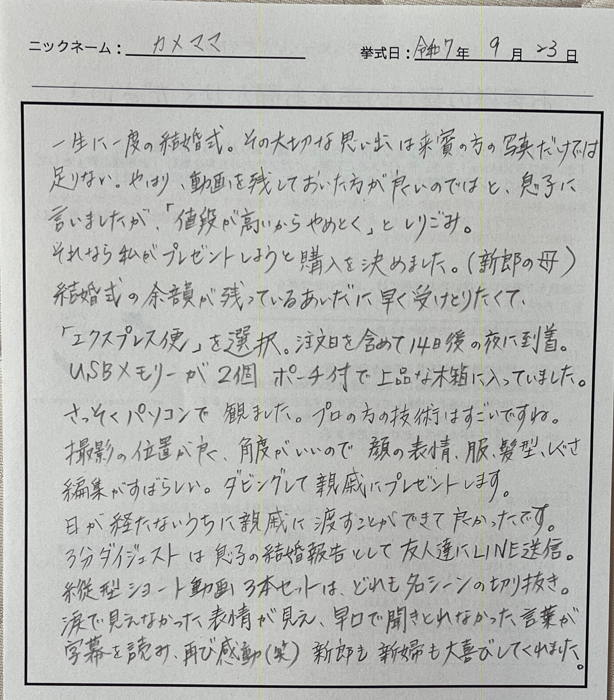 ニックネーム： カメママ 挙式日：令和7年 9月 23日
一生に一度の結婚式。その大切な思い出は来賓の方の写真だけでは
足りない。やはり、動画を残しておいた方が良いのではと、息子に
言いましたが、「値段が高いからやめとく」としりごみ。
それなら私がプレゼントしようと購入を決めました。（新郎の母）
結婚式の余韻が残っているあいだに早く受けとりたくて、
「エクスプレス便」を選択。注文日を含めて14日後の夜に到着。
USBメモリーが2個 ポーチ付で上品な木箱に入っていました。
さっそくパソコンで観ました。プロの方の技術はすごいですね。
撮影の位置が良く、角度がいいので 顔の表情、服、髪型、しぐさ
編集がすばらしい。ダビングして親戚にプレゼントします。
日が経たないうちに親戚に渡すことができて良かったです。
3分ダイジェストは息子の結婚報告として友人達にLINE送信。
縦型ショート動画3本セットは、どれも名シーンの切り抜き。
涙で見えなかった表情が見え、早口で聞きとれなかった言葉が
字幕を読み、再び感動（笑）新郎も新婦も大喜びしてくれました。